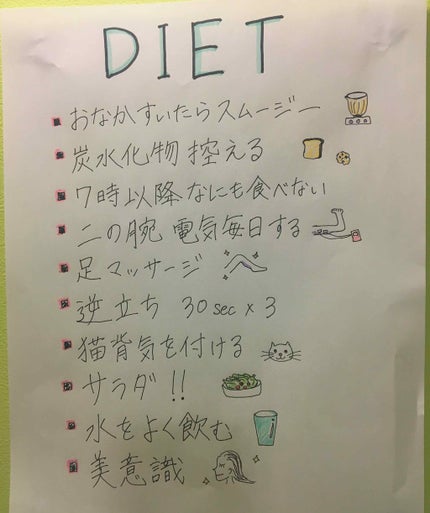 DIET
おなかすいたらスムージー
炭水化物 控える
7時以降なにも食べない
二の腕 電気毎日する
足マッサージ
逆立ち 30sec×3
猫背気を付ける
サラダ!!
水をよく飲む
美意識